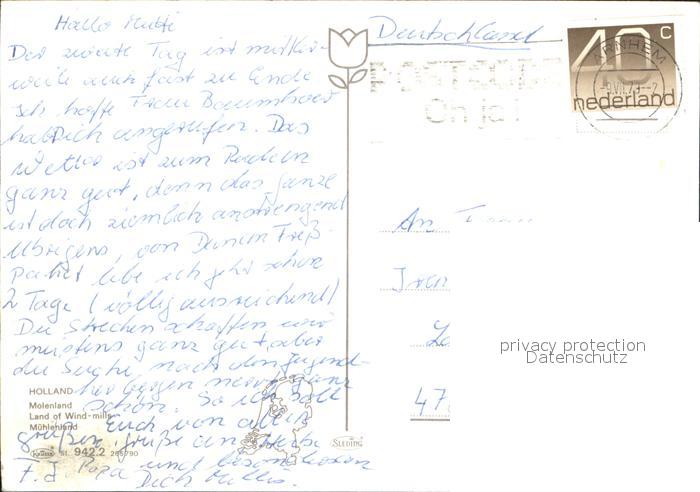 Hallo Mutti
Der zweite Tag ist mittler-
weile auch fast zu Ende
Ich hoffe Frau
hat Dich angerufen. Das
Wetter ist zum Radeln
ganz gut, denn das ganze
ist doch ziemlich anstrengend
Übrigens, von Deinem Freß-
Paket lebe ich jetzt schon
2 Tage (völlig ausreichend)
Die Strecken schaffen wir
meistens ganz gut, aber
die Suche nach den Jugend-
herbergen nervt ganz
schön. So ich soll
Euch von allen
grüßen, grüße an
Papa und
Dich
Deutschland
40 c
nederland
ARNHEM
POSTCODE
Oh ja!
An Frau
47
privacy protection
Datenschutz
HOLLAND
Molenland
Land of Wind-mills
Mühlenland
St. 942.2
SLEDING